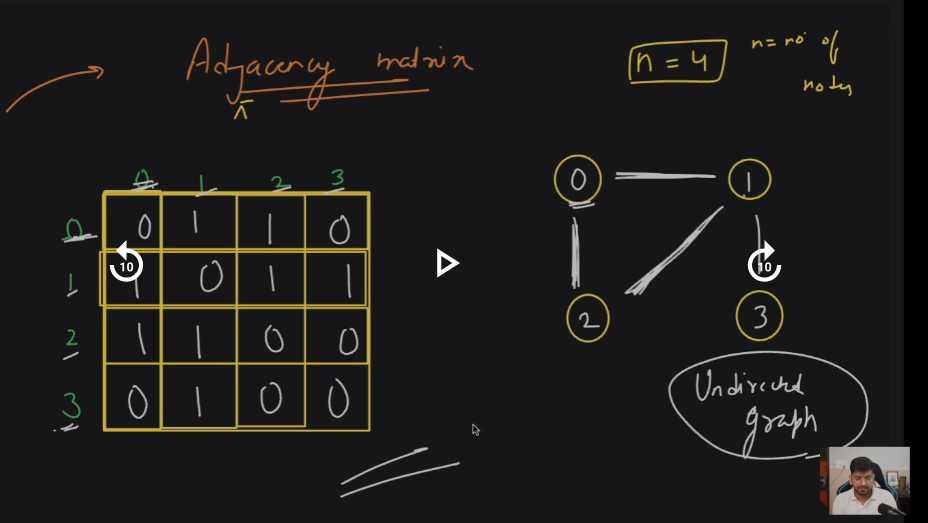 Adjacency matrix
n = 4
n = no of
nodes
0 1 2 3
0 0 1 1 0
1 1 0 1 1
2 1 1 0 0
3 0 1 0 0
0 1
2 3
10 10
Undirected
graph